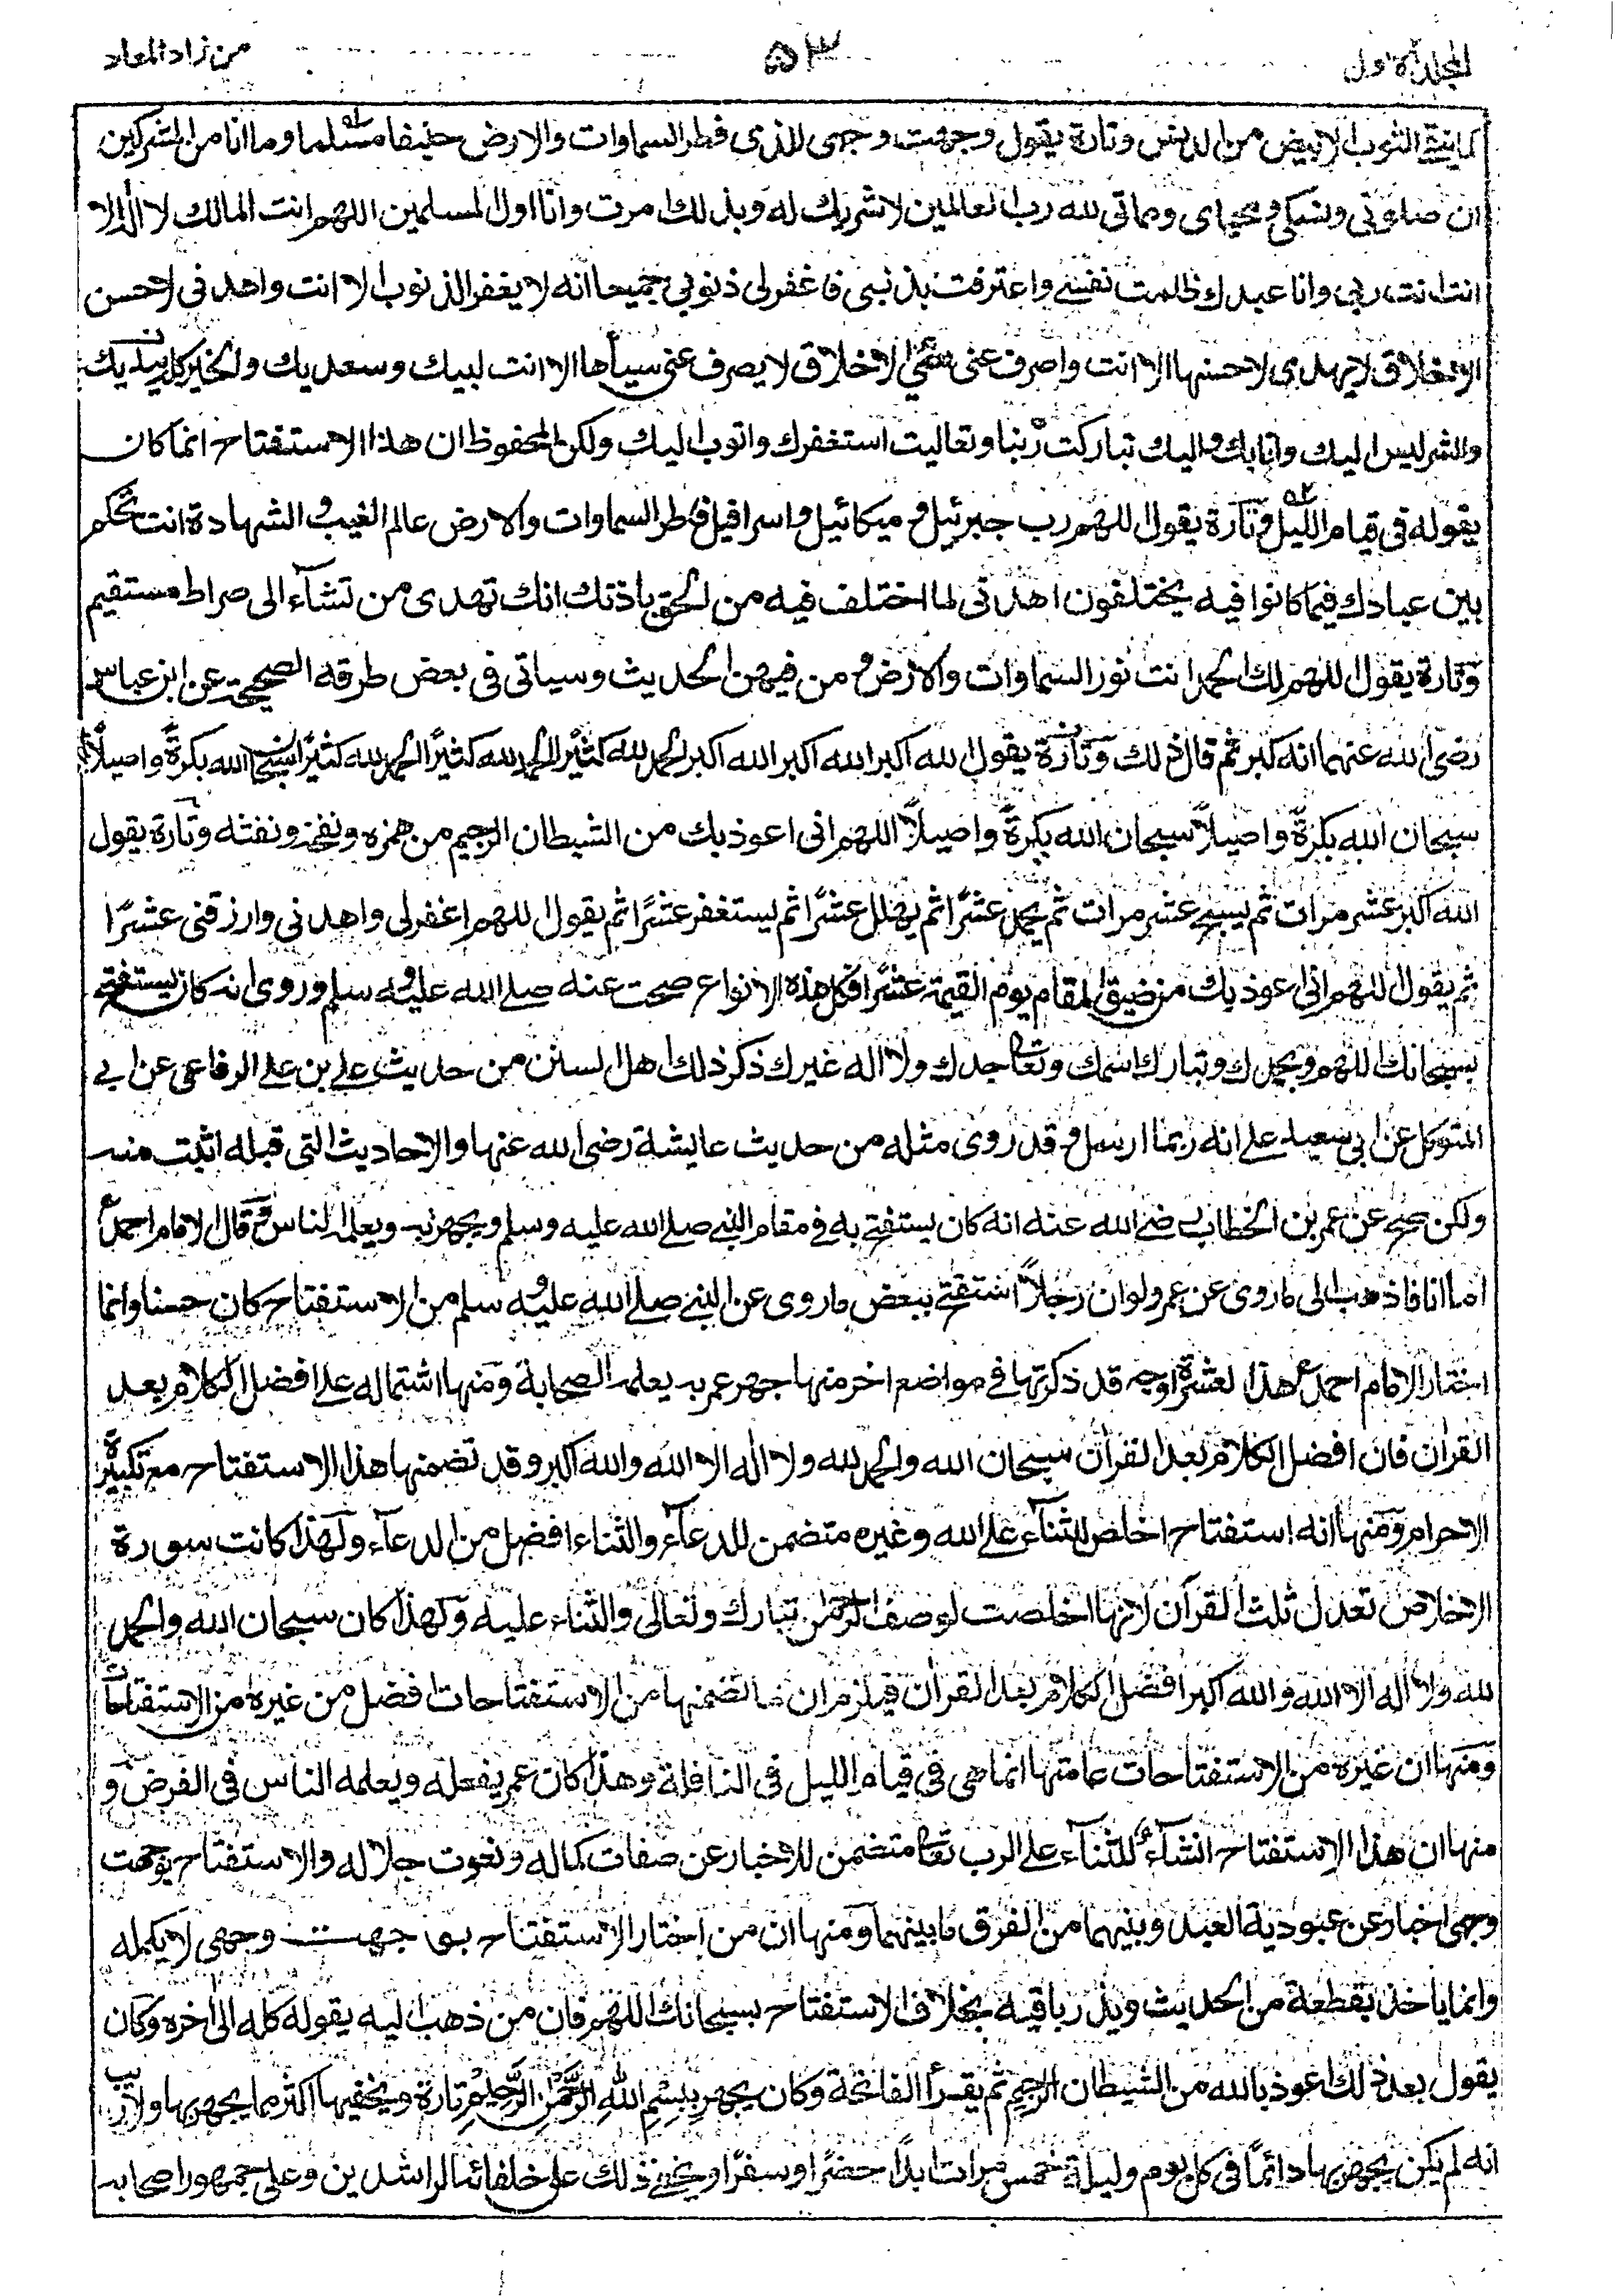 المجلد الاول
٥٣
من زاد المعاد
كما ينقى الثوب الابيض من الدنس وتارة يقول وجهت وجهى للذى فطر السماوات والارض حنيفا مسلما وما انا من المشركين
ان صلوتى ونسكى ومحياى ومماتى لله رب العالمين لا شريك له وبذلك امرت وانا اول المسلمين اللهم انت المالك لا اله الا
انت انت ربى وانا عبدك ظلمت نفسى واعترفت بذنبى فاغفرلى ذنوبى جميعا انه لا يغفر الذنوب الا انت واهدنى لاحسن
الاخلاق لا يهدى لاحسنها الا انت واصرف عنى سيئ الاخلاق لا يصرف عنى سيأها الا انت لبيك وسعديك والخير كله بيديك
والشر ليس اليك وانا بك واليك تباركت ربنا وتعاليت استغفرك واتوب اليك ولكن المحفوظ ان هذا الاستفتاح انما كان
يقوله فى قيام الليل وتارة يقول اللهم رب جبرئيل وميكائيل واسرافيل فاطر السماوات والارض عالم الغيب والشهادة انت تحكم
بين عبادك فيما كانوا فيه يختلفون اهدنى لما اختلف فيه من الحق باذنك انك تهدى من تشآء الى صراط مستقيم
وتارة يقول اللهم لك الحمد انت نور السماوات والارض ومن فيهن الحديث وسياتى فى بعض طرقه الصحيحة عن ابن عباس
رضى الله عنهما انه كبر ثم قال ذلك وتارة يقول الله اكبر الله اكبر الله اكبر الحمد لله كثيرًا الحمد لله كثيرًا الحمد لله كثيرًا سبحان الله بكرةً واصيلًا
سبحان الله بكرةً واصيلًا سبحان الله بكرةً واصيلًا اللهم انى اعوذ بك من الشيطان الرجيم من همزه ونفخه ونفثه وتارة يقول
الله اكبر عشر مرات ثم يسبح عشر مرات ثم يحمد عشرًا ثم يهلل عشرًا ثم يستغفر عشرًا ثم يقول اللهم اغفرلى واهدنى وارزقنى عشرًا
ثم يقول اللهم انى اعوذ بك من ضيق المقام يوم القيمة عشرًا فكل هذه الانواع صحت عنه صلى الله عليه وسلم وروى انه كان يستفتح
بسبحانك اللهم وبحمدك وتبارك اسمك وتعالى جدك ولا اله غيرك ذكر ذلك اهل السنن من حديث على بن على الرفاعى عن ابى
المتوكل عن ابى سعيد على انه ربما ارسل وقد روى مثله من حديث عايشة رضى الله عنها والاحاديث التى قبله اثبت منه
ولكن صح عن عمر بن الخطاب رضى الله عنه انه كان يستفتح به فى مقام النبى صلى الله عليه وسلم ويجهر به ويعلمه الناس وقال الامام احمد
اما انا فاذهب الى ما روى عن عمر ولو ان رجلًا استفتح ببعض ما روى عن النبى صلى الله عليه وسلم من الاستفتاح كان حسنا وانما
اختار الامام احمد هذا لعشرة اوجه قد ذكرتها فى مواضع اخر منها جهر عمر به يعلمه الصحابة ومنها اشتماله على افضل الكلام بعد
القران فان افضل الكلام بعد القرآن سبحان الله والحمد لله ولا اله الا الله والله اكبر وقد تضمنها هذا الاستفتاح مع تكبيرة
الاحرام ومنها انه استفتاح اخلص للثنآء على الله وغيره متضمن للدعآء والثناء افضل من الدعآء ولهذا كانت سورة
الاخلاص تعدل ثلث القرآن لانها اخلصت لوصف الرحمن تبارك وتعالى والثناء عليه ولهذا كان سبحان الله والحمد
لله ولا اله الا الله والله اكبر افضل الكلام بعد القرآن فيلزم ان ما تضمنها من الاستفتاحات افضل من غيره من الاستفتاحات
ومنها ان غيره من الاستفتاحات عامتها انما هى فى قيام الليل فى النافلة وهذا كان عمر يفعله ويعلمه الناس فى الفرض و
منها ان هذا الاستفتاح انشآء للثنآء على الرب تعالى متضمن للاخبار عن صفات كماله ونعوت جلاله والاستفتاح بوجهت
وجهى اخبار عن عبودية العبد وبينهما من الفرق ما بينهما ومنها ان من اختار الاستفتاح بوجهت وجهى لا يكمله
وانما ياخذ بقطعة من الحديث ويذر باقيه بخلاف الاستفتاح بسبحانك اللهم فان من ذهب اليه يقوله كله الى اخره وكان
يقول بعد ذلك اعوذ بالله من الشيطان الرجيم ثم يقرأ الفاتحة وكان يجهر ببِسْمِ اللهِ الرَّحْمٰنِ الرَّحِيْمِ تارة ويخفيها اكثر مما يجهر بها ولا ريب
انه لم يكن يجهر بها دائمًا فى كل يوم وليلة خمس مرات ابدًا حضرًا وسفرًا ويخفى ذلك على خلفائه الراشدين وعلى جمهور اصحابه